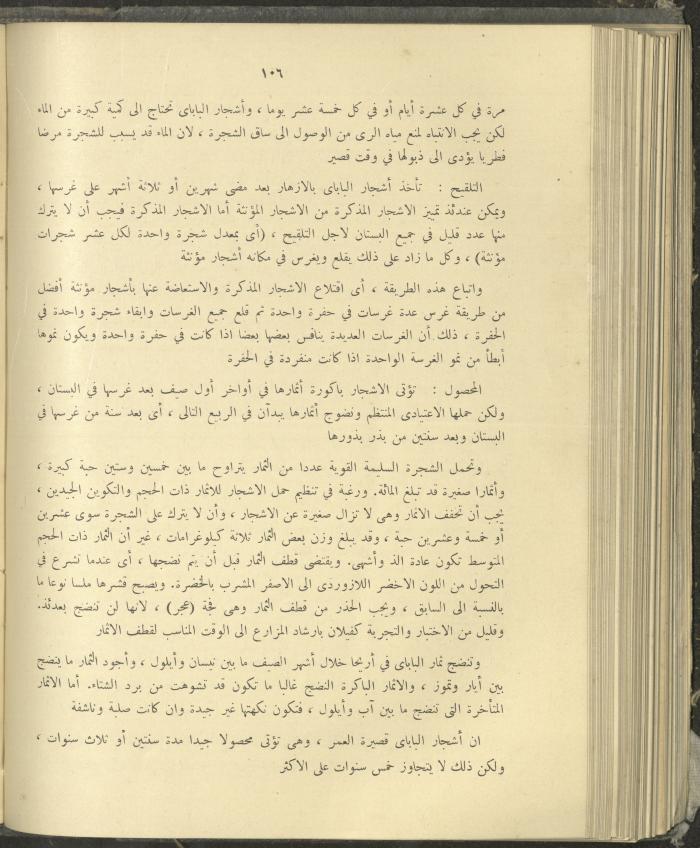 ١٠٦
مرة في كل عشرة أيام أو في كل خمسة عشر يوما ، وأشجار الباباى تحتاج الى كمية كبيرة من الماء
لكن يجب الانتباه لمنع مياه الرى من الوصول الى ساق الشجرة ، لان الماء قد يسبب للشجرة مرضا
فطريا يؤدى الى ذبولها في وقت قصير
التلقيح : تأخذ أشجار الباباى بالازهار بعد مضى شهرين أو ثلاثة أشهر على غرسها ،
ويمكن عندئذ تمييز الاشجار المذكرة من الاشجار المؤنثة أما الاشجار المذكرة فيجب أن لا يترك
منها عدد قليل في جميع البستان لاجل التلقيح ، (أى بمعدل شجرة واحدة لكل عشر شجرات
مؤنثة) ، وكل ما زاد على ذلك يقلع ويغرس في مكانه أشجار مؤنثة
واتباع هذه الطريقة ، أى اقتلاع الاشجار المذكرة والاستعاضة عنها بأشجار مؤنثة أفضل
من طريقة غرس عدة غرسات في حفرة واحدة ثم قلع جميع الغرسات وابقاء شجرة واحدة في
الحفرة ، ذلك أن الغرسات العديدة ينافس بعضها بعضا اذا كانت في حفرة واحدة ويكون نموها
أبطأ من نمو الغرسة الواحدة اذا كانت منفردة في الحفرة
المحصول : تؤتى الاشجار باكورة أثمارها في أواخر أول صيف بعد غرسها في البستان ،
ولكن حملها الاعتيادى المنتظم ونضوج أثمارها يبدآن في الربيع التالى ، أى بعد سنة من غرسها في
البستان وبعد سنتين من بذر بذورها
وتحمل الشجرة السليمة القوية عددا من الثمار يتراوح ما بين خمسين وستين حبة كبيرة ،
وأثمارا صغيرة قد تبلغ المائة. ورغبة في تنظيم حمل الاشجار للاثمار ذات الحجم والتكوين الجيدين ،
يجب أن تخفف الاثمار وهى لا تزال صغيرة عن الاشجار ، وأن لا يترك على الشجرة سوى عشرين
أو خمسة وعشرين حبة ، وقد يبلغ وزن بعض الثمار ثلاثة كيلوغرامات ، غير أن الثمار ذات الحجم
المتوسط تكون عادة الذ وأشهى. ويقتضى قطف الثمار قبل أن يتم نضجها ، أى عندما تشرع في
التحول من اللون الاخضر اللازوردى الى الاصفر المشرب بالخضرة. ويصبح قشرها ملسا نوعا ما
بالنسبة الى السابق ، ويجب الحذر من قطف الثمار وهى فجة (عجر) ، لانها لن تنضج بعدئذ.
وقليل من الاختبار والتجربة كفيلان بارشاد المزارع الى الوقت المناسب لقطف الاثمار
وتنضج ثمار الباباى في أريحا خلال أشهر الصيف ما بين نيسان وأيلول ، وأجود الثمار ما ينضج
بين أيار وتموز ، والاثمار الباكرة النضج غالبا ما تكون قد تشوهت من برد الشتاء. أما الاثمار
المتأخرة التى تنضج ما بين آب وأيلول ، فتكون نكهتها غير جيدة وان كانت صلبة وناشفة
ان أشجار الباباى قصيرة العمر ، وهى تؤتى محصولا جيدا مدة سنتين أو ثلاث سنوات ،
ولكن ذلك لا يتجاوز خمس سنوات على الاكثر